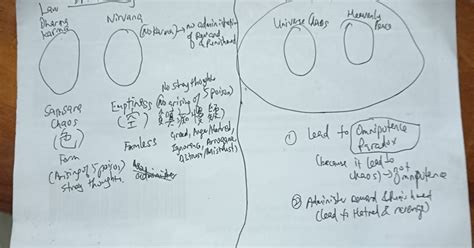 Law
Dharma
Karma
Nirvana
(No Karma) → no administration
of Reward
& Punishment
Samsara
Chaos
(色)
Form
(Arising of 5 poisons
stray thoughts
Emptiness
(空)
Formless
No stray thoughts
(No arising of 5 poisons)
貪 瞋 痴 慢 疑
Greed, Anger/Hatred,
Ignorance, Arrogance
Doubt/Mistrust)
Universe Chaos
Heavenly
① Lead to Omnipotence
Paradox
(because it lead to
chaos) → not
Omnipotence
② Administer Reward & Punishment
(lead to Hatred & revenge)